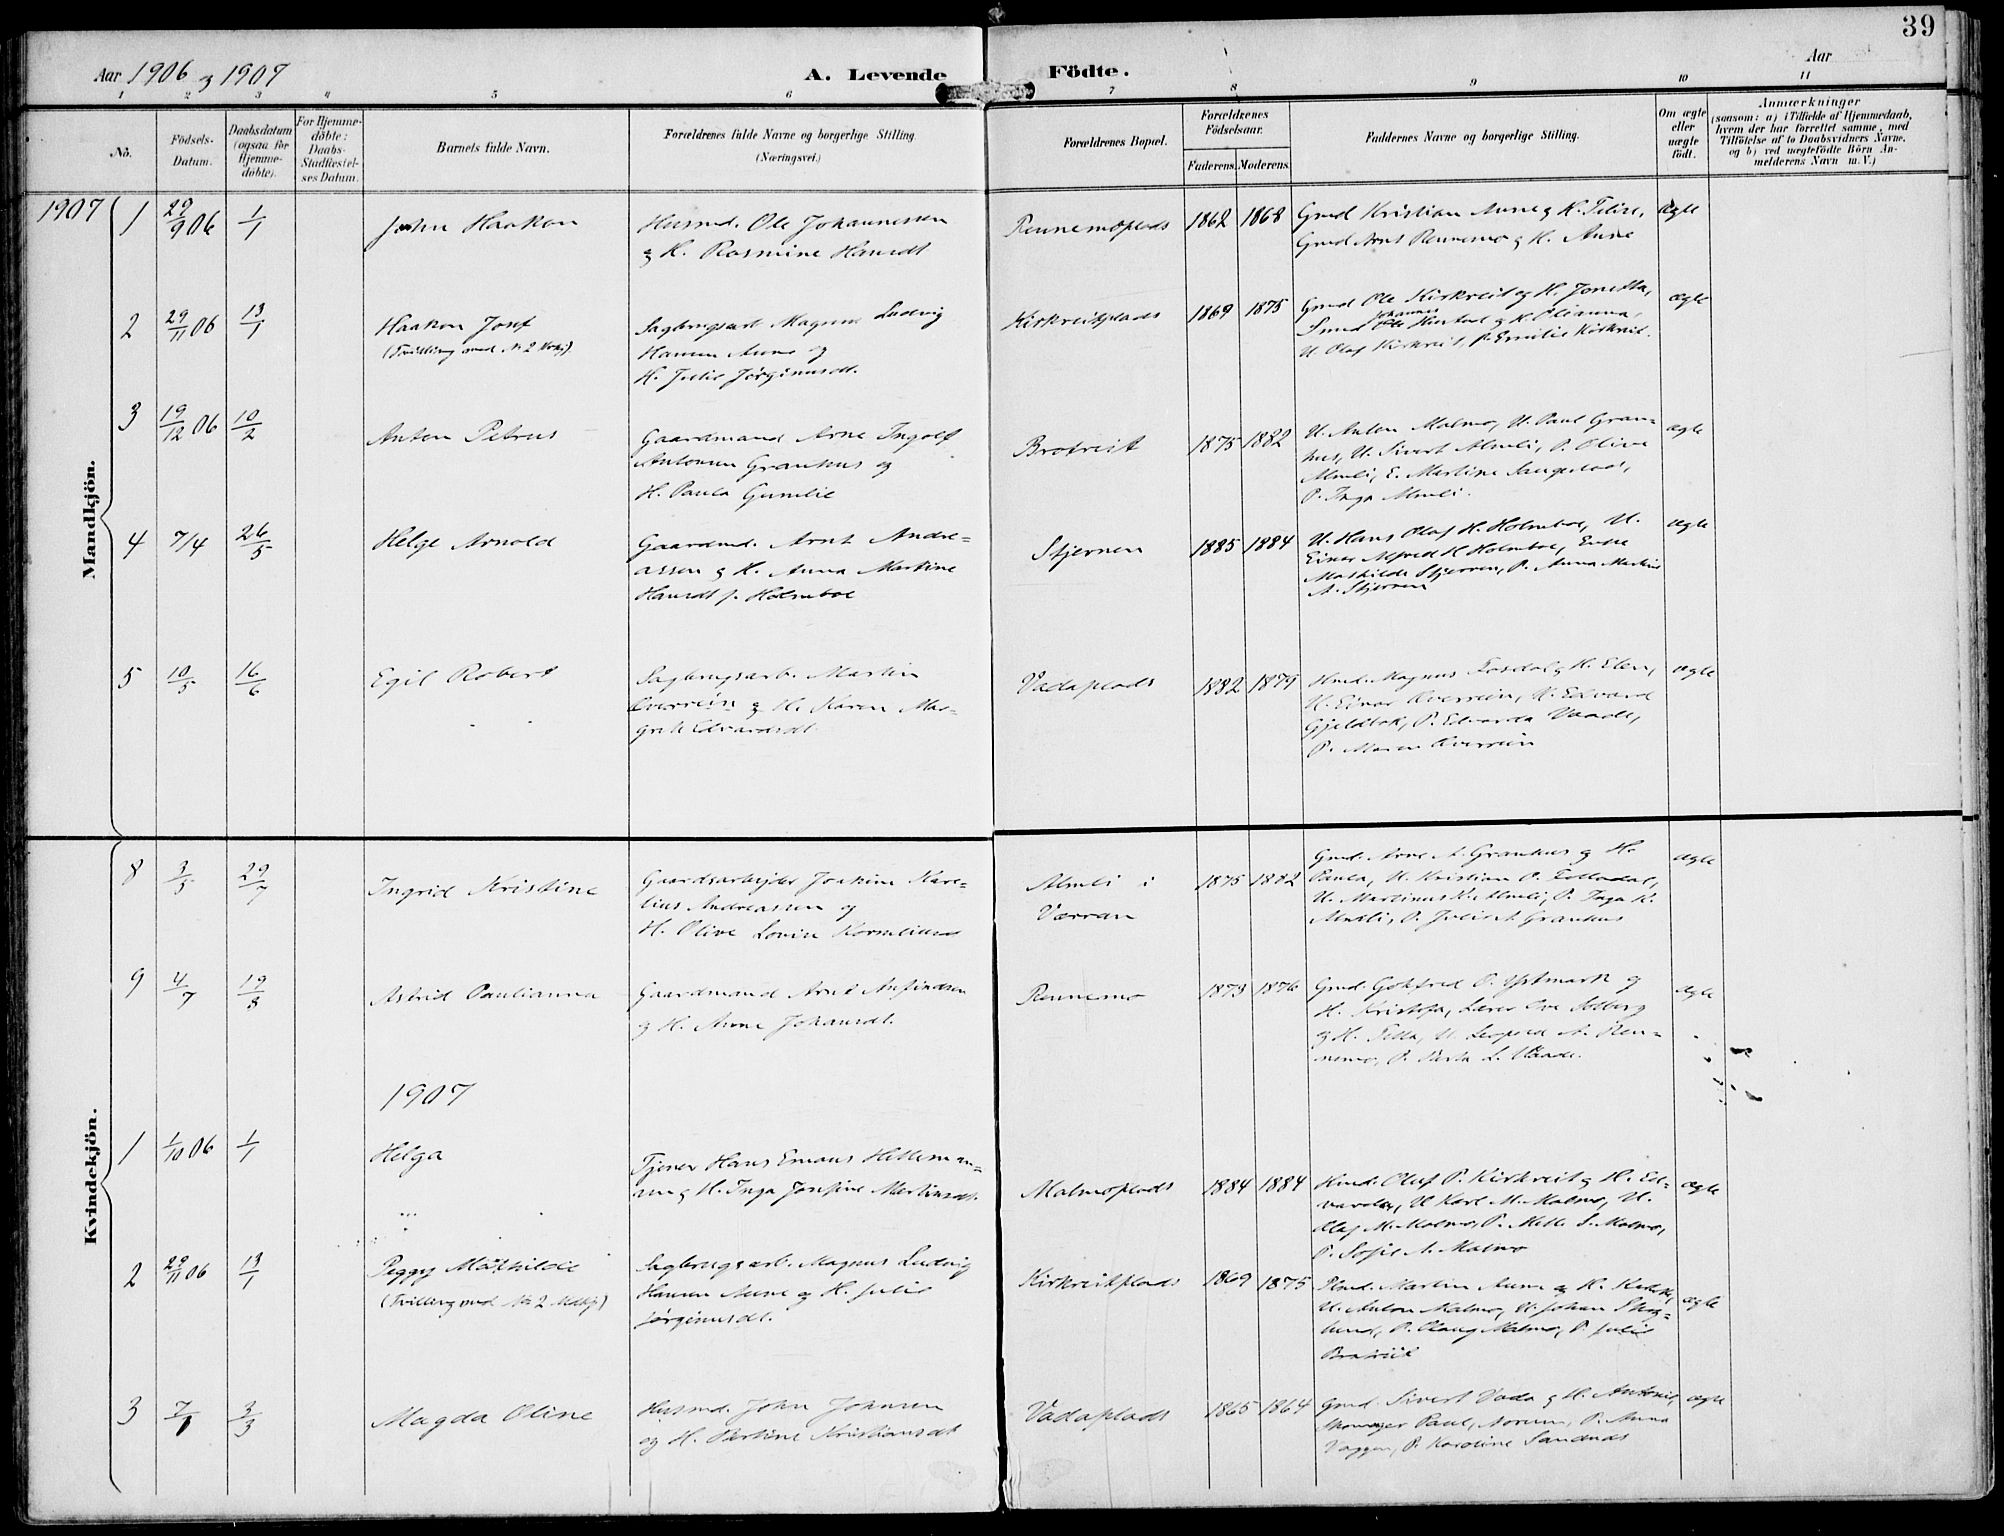 39
Aar 1906 og 1907
A. Levende Födte.
Aar
1 2 3 4 5 6 7 8 9 10 11
No.
Födsels-Datum.
Daabsdatum (ogsaa for Hjemme-döbte).
For Hjemme-döbte: Daabs-Stadfæstel-ses Datum.
Barnets fulde Navn.
Forældrenes fulde Navne og borgerlige Stilling.
(Næringsvei.)
Forældrenes Bopæl.
Forældrenes Födselsaar.
Faderens. Moderens.
Faddernes Navne og borgerlige Stilling.
Om ægte eller uægte födt.
Anmærkninger
(saasom: a) i Tilfælde af Hjemmedaab,
hvem der har forrettet samme, med
Tilföielse af to Daabsvidners Navne.
og b) ved uægtefödte Börn An-
melderens Navn m. V.)
Mandkjön.
1907
1 29/9 06 1/1 John Haakon
Husmd. Ole Johannessen
og H. Rasmine Hansdt
Rennemoplads 1862 1868
Gmd Kristian Aune og H.
Gmd Arnt Rennemo og H. Anne
ægte
2 29/11 06 13/1 Haakon Josef
(Tvilling med No 2 Kvkj)
Sagbrugsarb Magnus Ludvig
Hansen Aune og
H. Julie Jørginusdt.
Kirkreitplads 1869 1875
Gmd Ole Kirkreit og H. Jonetta,
Johannes
og H. Olianna,
U. Olaf Kirkreit, P. Emilie Kirkreit.
ægte
3 19/12 06 10/2 Anton Petrus
Gaardmand Arne Ingolf
Antonsen Granhus og
H. Paula Gunelie
Brotreit 1875 1882
U. Anton Malmo, U. Paul Gran-
hus, U. Sivert Almli, P. Olive
Almli, E. Martine
P. Inga Almli.
ægte
4 7/4 26/5 Helge Arnold
Gaardmd. Arnt Andre-
assen og H. Anna Martine
Hansdt f. Holmboe
Stjernen 1885 1884
U. Hans Olaf H. Holmboe, U.
Einar Alfred H Holmboe, Enke
Mathilde Stjernen, P. Anna Martine
A. Stjernen
ægte
5 10/5 16/6 Egil Robert
Sagbrugsarb. Martin
Kverrein og H. Karen Mar-
grete Edvardsdt.
Vadaplads 1882 1879
Hmd. Magnus Fosdal og H. Elen,
U. Einar Kverrein, U. Edvard
Gjeldbak, P. Edvarda Vaade,
P. Maren Kverrein
ægte
Kvindekjön.
8 3/5 29/7 Ingrid Kristine
Gaardsarbejder Joakim Kare-
lius Andreassen og
H. Olive Lovise Korneliusdt
Almli i
Værran
1875 1882
Gmd. Arne A. Granhus og H.
Paula, U. Kristian P. Folladal,
U. Martinus K. Almli, P. Inga K.
Almli, P. Julie A. Granhus
ægte
9 4/7 19/8 Astrid Paulianna
Gaardmand Arnt Anfindsen
og H. Anne Johansdt.
Rennemo 1873 1876
Gmd. Gotfred P. Ystmark og
H. Kristofa, Lærer Ove Solberg
og H. Jetta, U. Leopold A. Ren-
nemo, P. L. Vaade.
ægte
1907
1 1/10 06 1/1 Helga
Tjener Hans Emans Helleman-
og H. Inga Josefine Martinsdt.
Malmoplads 1884 1884
Hmd. Oluf P. Kirkreit og H. Ed-
varda, U Karl M. Malmo, U.
Olaf M. Malmo, P. Mette S. Malmo,
P. Sofie A. Malmo
ægte
2 29/11 06 13/1 Peggy Mathilde
(Tvilling med No 2 Mdkj)
Sagbrugsarb. Magnus Ludvig
Hansen Aune og H. Julie
Jørginusdt.
Kirkreitplads 1869 1875
Hmd. Martin Aune og H.
U. Anton Malmo, U. Johan Skog-
lund, P. Olaug Malmo, P. Julie
Bratreit
ægte
3 7/1 3/3 Magda Oline
Husmd. John Johnsen
og H. Kristiansdt
Vadaplads 1865 1864
Gmd. Sivert Vada og H. Antonie,
Skomager Paul, P. Anna
Vaggen, P. Karoline Sandnes
ægte